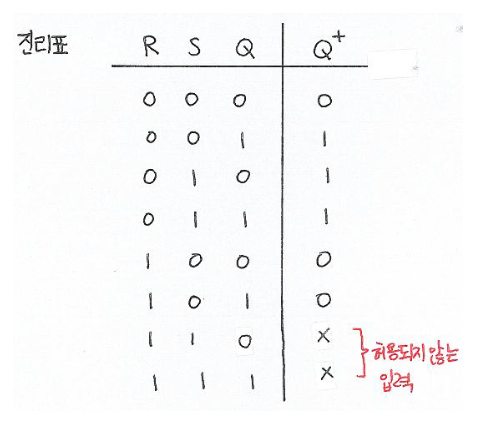 진리표
R S Q Q+
0 0 0 0
0 0 1 1
0 1 0 1
0 1 1 1
1 0 0 0
1 0 1 0
1 1 0 X
1 1 1 X
허용되지 않는
입력